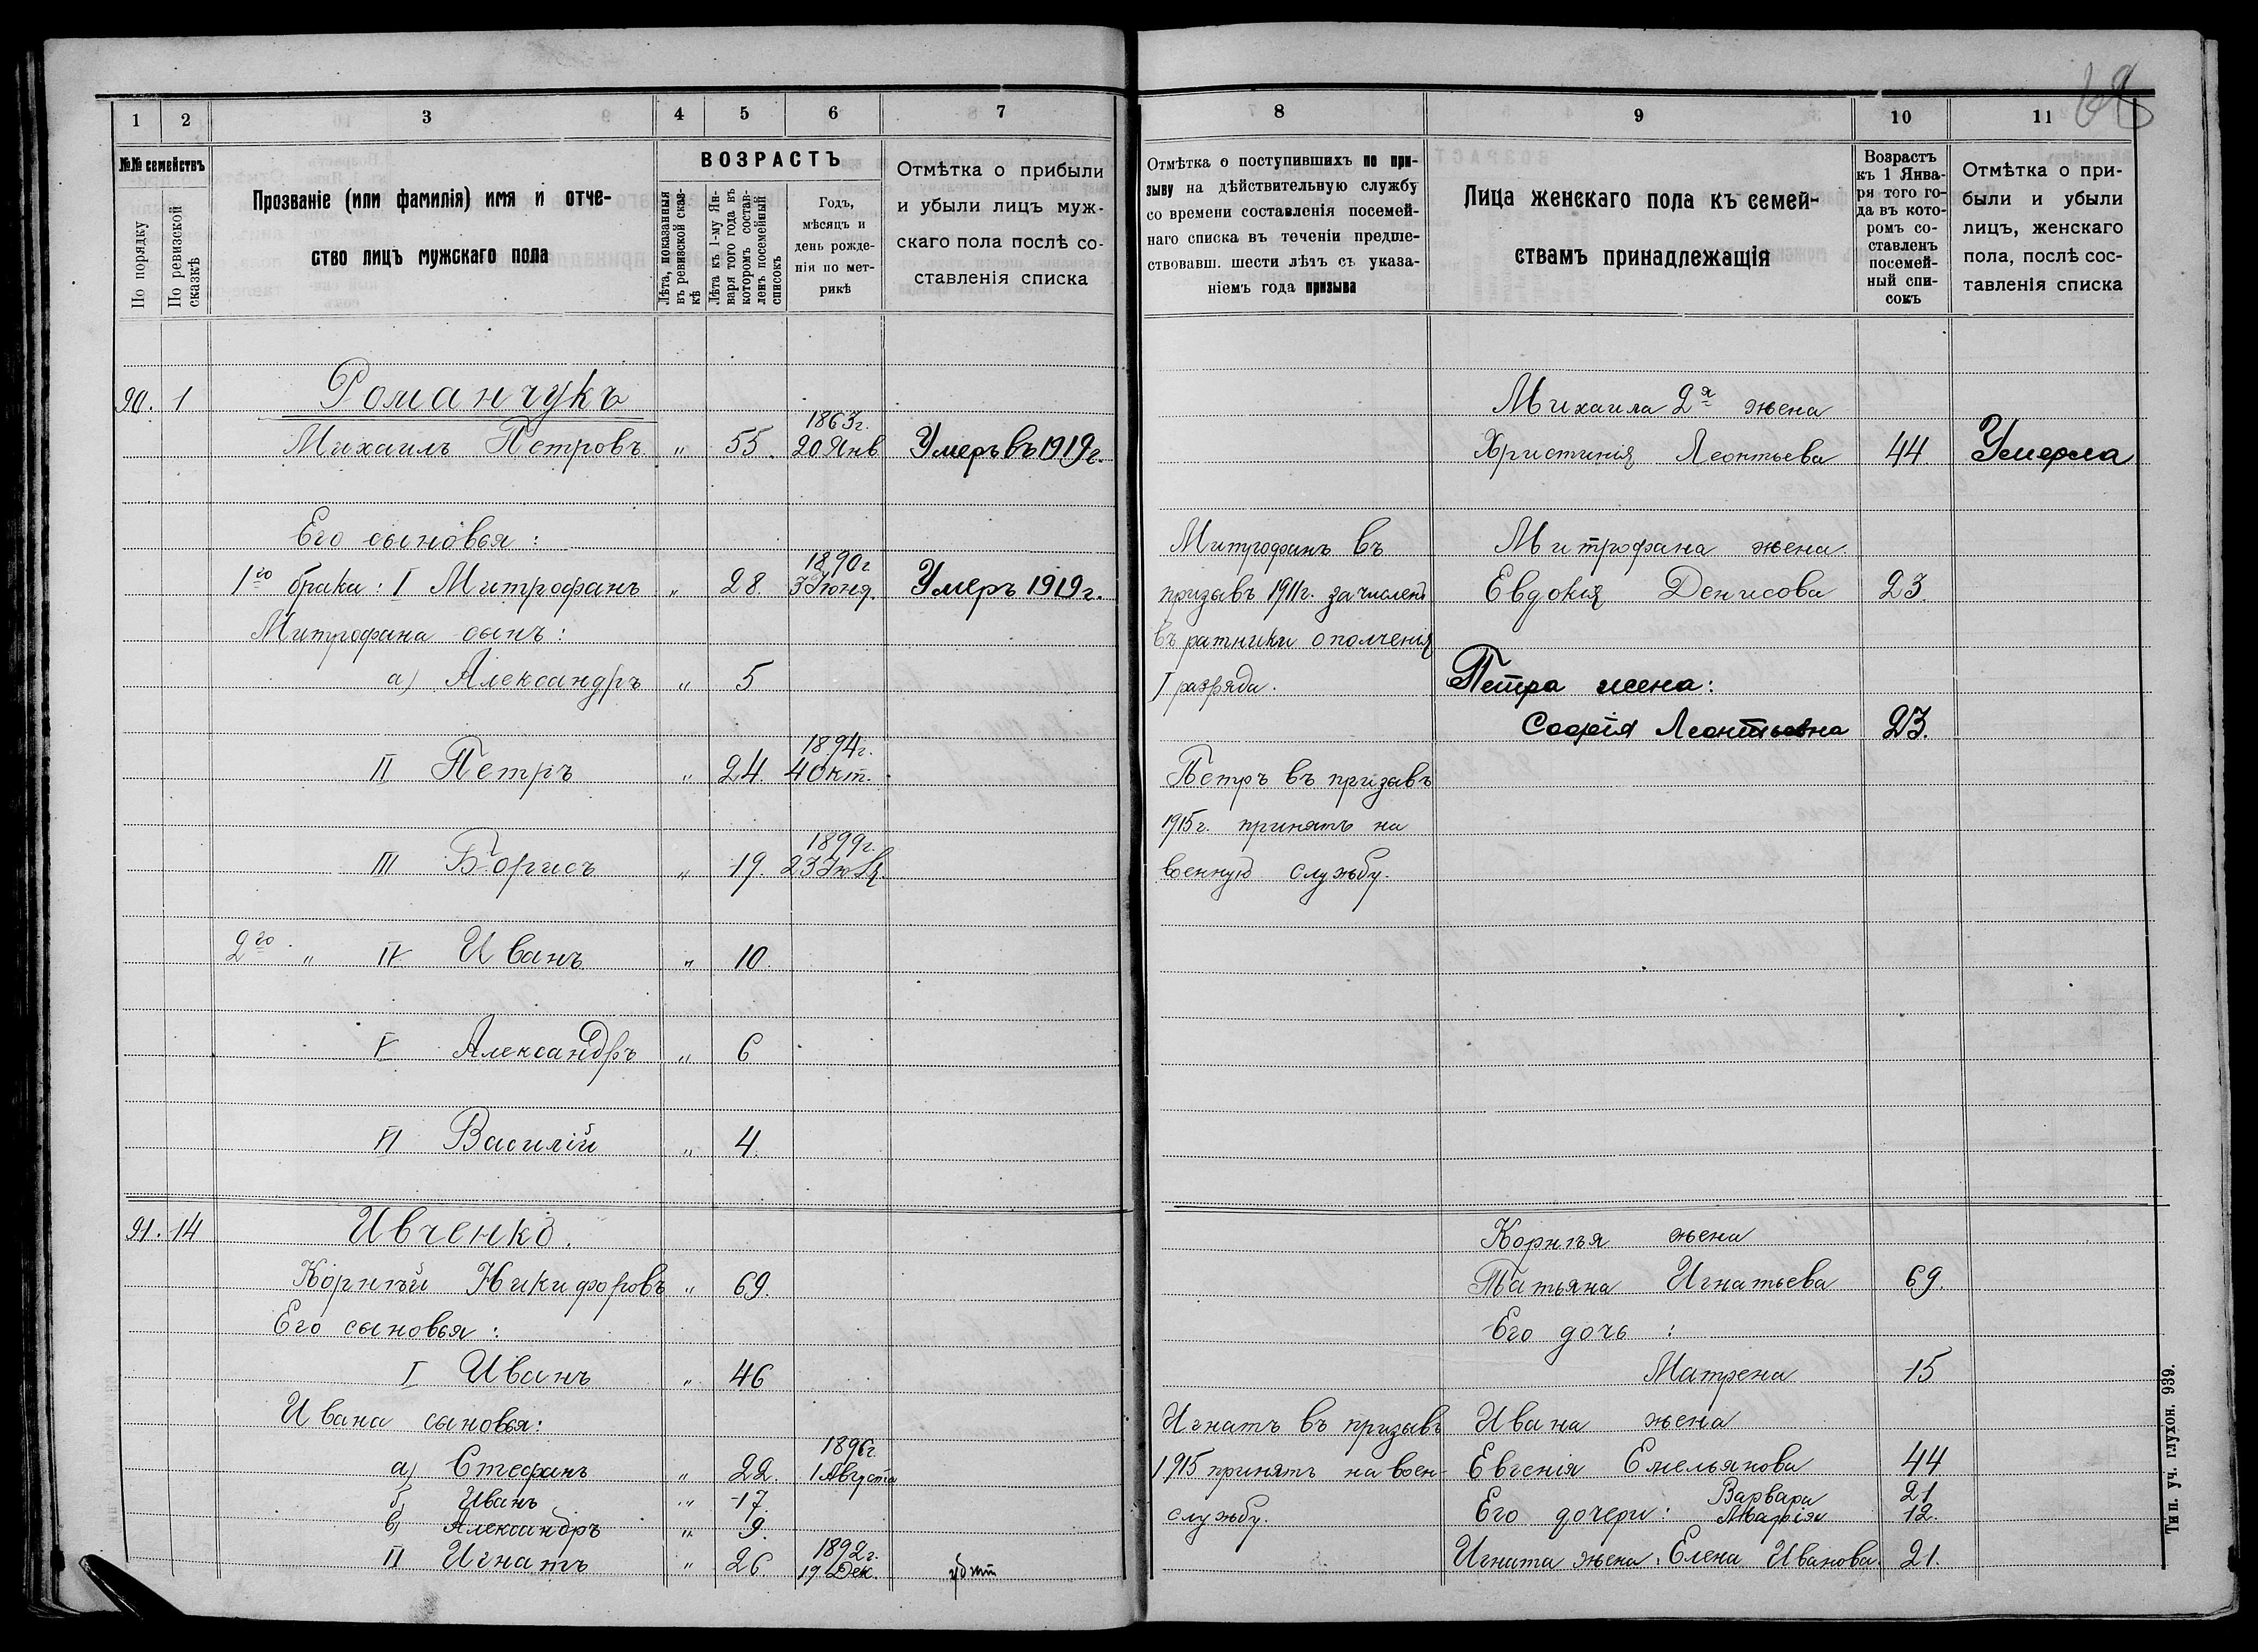 1 2 3 4 5 6 7
№№ семействъ
По порядку
По ревизской сказкѣ
Прозваніе (или фамилія) имя и отче-
ство лицъ мужскаго пола
ВОЗРАСТЪ
Лѣта, показанныя
въ ревизской сказ-
кѣ
Лѣта къ 1-му Ян-
варя того года въ
которомъ состав-
ленъ посемейный
списокъ
Годъ,
мѣсяцъ и
день рожде-
нія по мет-
рикѣ
Отмѣтка о прибыли
и убыли лицъ муж-
скаго пола послѣ со-
ставленія списка
90. 1 Романчукъ
1863г.
Михаилъ Петровъ „ 55. 20 Янв. Умеръ въ 1919г.
Его сыновья:
1890г
1го брака: I Митрофанъ „ 28. 3 Іюня. Умеръ 1919г.
Митрофана сынъ:
а) Александръ „ 5
1894г.
II Петръ „ 24. 4 Окт.
1899г.
III Борисъ „ 19. 23 Іюля.
2го „ IV Иванъ „ 10
V Александръ „ 6
VI Василій „ 4.
91. 14 Ивченко.
Корнѣй Никифоровъ „ 69.
Его сыновья:
I Иванъ „ 46
Ивана сыновья:
1896г.
а) Стефанъ „ 22. 1 Августа
б) Иванъ „ 17.
в) Александръ „ 9.
1892г.
II Игнатъ „ 26 19 Дек. убит
8 9 10 11
Отмѣтка о поступившихъ по при-
зыву на дѣйствительную службу
со времени составленія посемей-
наго списка въ теченіи предше-
ствовавш. шести лѣтъ съ указа-
ніемъ года призыва
Лица женскаго пола къ семей-
ствамъ принадлежащія
Возрастъ
къ 1 Янва-
ря того го-
да въ кото-
ромъ со-
ставленъ
посемей-
ный спи-
сокъ
Отмѣтка о при-
были и убыли
лицъ, женскаго
пола, послѣ сос-
тавленія списка
Михаила 2я жена
Христинія Леонтьева 44. Умерла
Митрофанъ въ Митрофана жена
призывъ 1911г. зачисленъ Евдокія Денисова 23.
въ ратники ополченія
I разряда. Петра жена:
Софія Леонтьевна 23.
Петръ въ призывъ
1915г. принятъ на
военную службу.
Корнѣя жена
Татьяна Игнатьева 69.
Его дочь:
Матрена 15
Игнатъ въ призывъ Ивана жена
1915 принятъ на воен- Евгенія Емельянова 44
службу. Его дочери: Варвара 21
Марія 12.
Игната жена: Елена Иванова. 21.
Тип. уч. глухон. 939.